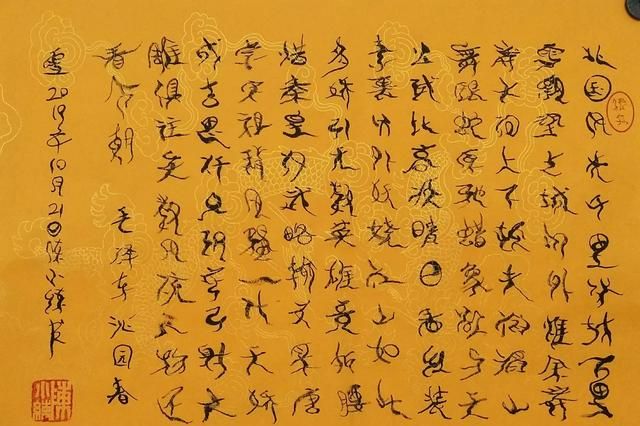 北国风光千里冰封万里
雪飘望长城内外惟余莽
莽大河上下顿失滔滔山
舞银蛇原驰蜡象欲与天
公试比高须晴日看红装
素裹分外妖娆江山如此
多娇引无数英雄竞折腰
惜秦皇汉武略输文采唐
宗宋祖稍逊风骚一代天骄
成吉思汗只识弯弓射大
雕俱往矣数风流人物还
看今朝 毛泽东沁园春
雪2019年10月21日陈小